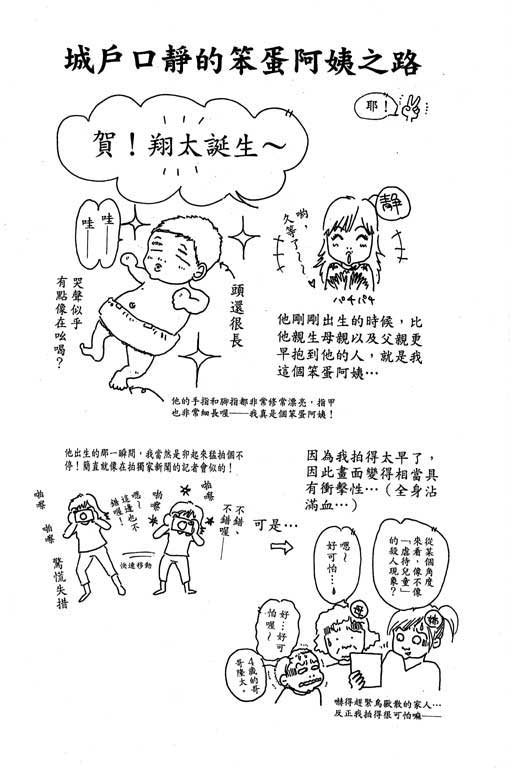 城戶口靜的笨蛋阿姨之路
耶!
賀!翔太誕生~
哇——
哇——
哭聲似乎
有點像在吆喝?
頭還很長
靜
喲,
久等了~~
パチパチ
他剛剛出生的時候,比
他親生母親以及父親更
早抱到他的人,就是我
這個笨蛋阿姨…
他的手指和腳指都非常修常漂亮,指甲
也非常細長喔——我真是個笨蛋阿姨!
他出生的那一瞬間,我當然是卯起來猛拍個不
停!簡直就像在拍獨家新聞的記者會似的!
啪嚓
啪嚓
嗯~
這邊也不
錯喔!
啪嚓
啪嚓
不錯、
不錯喔——
驚慌失措
快速移動
因為我拍得太早了,
因此畫面變得相當具
有衝擊性…(全身沾
滿血…)
可是…
從某個角度
來看,像不像
「虐待兒童」
的殺人現象?
嗯~
好可怕…
姊
好…好可
怕喔~
4歲的哥
哥隆太。
嚇得趕緊鳥獸散的家人…
反正我拍得很可怕嘛——